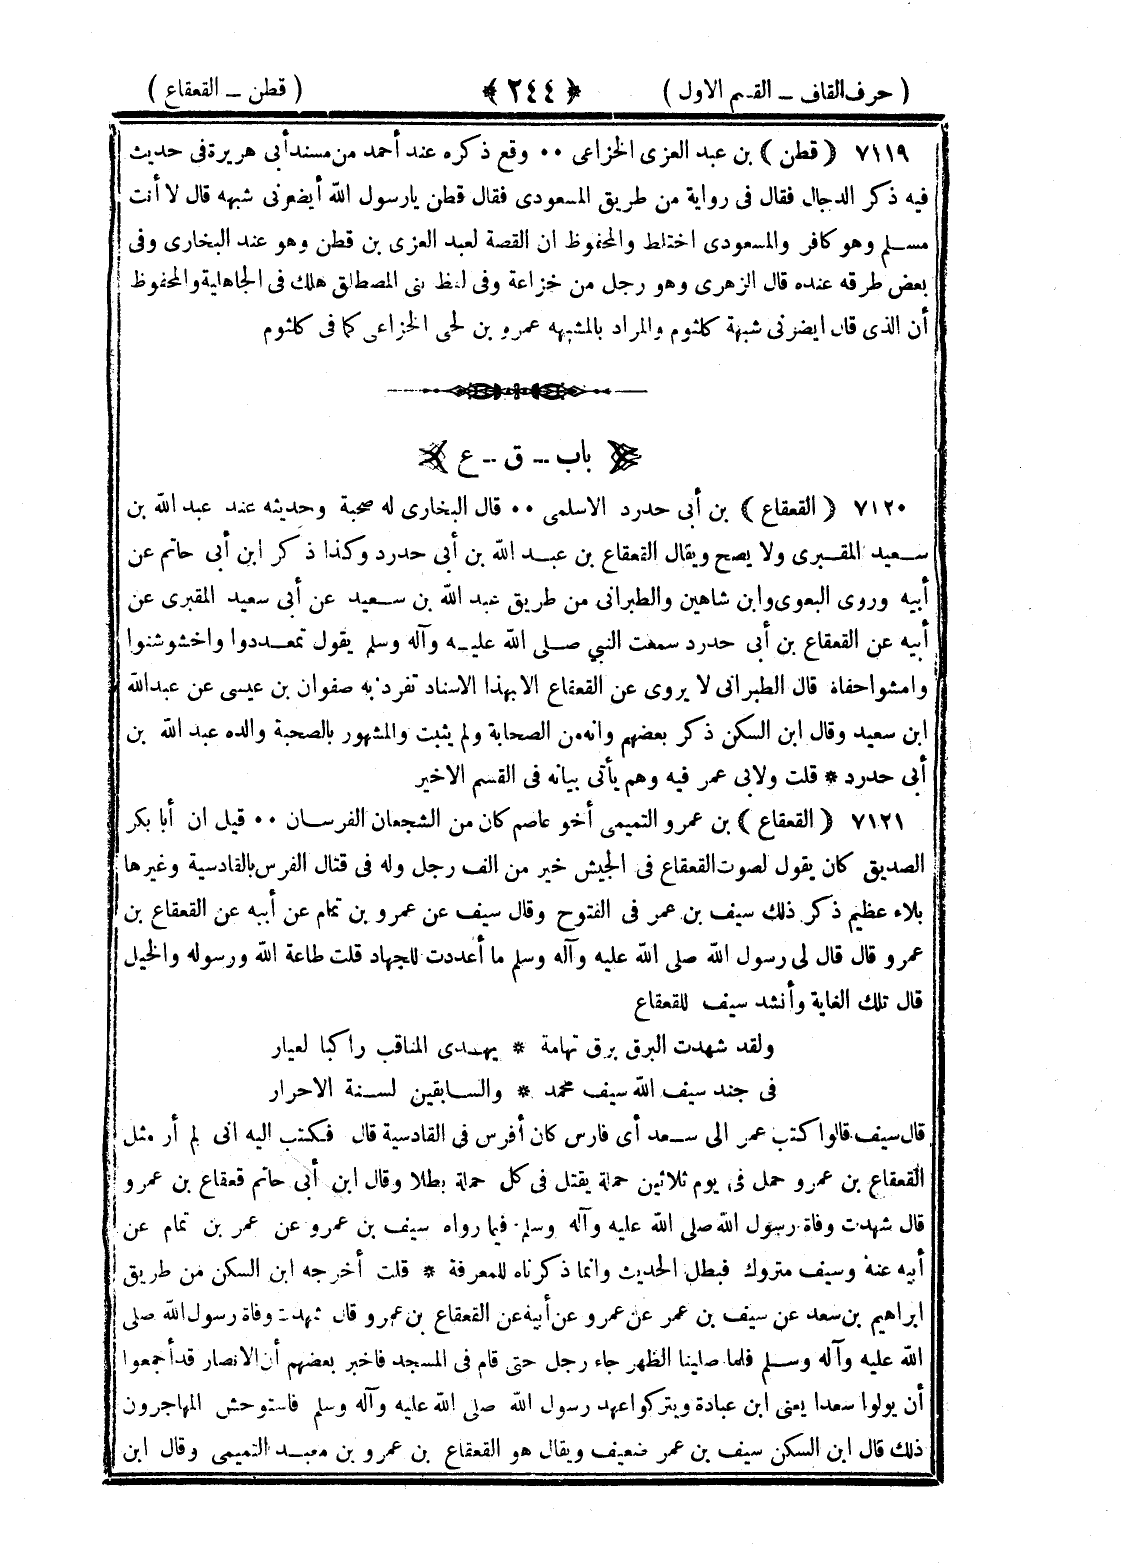 ( حرف القاف ــ القسم الاول ) ﴿ ٢٤٤ ﴾ ( قطن ــ القعقاع )
٧١١٩ ( قطن ) بن عبد العزى الخزاعى ٠٠ وقع ذكره عند أحمد من مسند أبى هريرة فى حديث
فيه ذكر الدجال فقال فى رواية من طريق المسعودى فقال قطن يارسول الله أيضرنى شبهه قال لا أنت
مسلم وهو كافر والمسعودى اختلط والمحفوظ ان القصة لعبد العزى بن قطن وهو عند البخارى وفى
بعض طرقه عنده قال الزهرى وهو رجل من خزاعة وفى لفظ بنى المصطلق هلك فى الجاهلية والمحفوظ
أن الذى قال ايضرنى شبهة كلثوم والمراد بالمشبهه عمرو بن لحى الخزاعى كما فى كلثوم
باب ــ ق ــ ع
٧١٢٠ ( القعقاع ) بن أبى حدرد الاسلمى ٠٠ قال البخارى له صحبة وحديثه عند عبد الله بن
سعيد المقبرى ولا يصح ويقال القعقاع بن عبد الله بن أبى حدرد وكذا ذكر ابن أبى حاتم عن
أبيه وروى البغوى وابن شاهين والطبرانى من طريق عبد الله بن سعيد عن أبى سعيد المقبرى عن
أبيه عن القعقاع بن أبى حدرد سمعت النبي صلى الله عليه وآله وسلم يقول تمعددوا واخشوشنوا
وامشوا حفاة قال الطبرانى لا يروى عن القعقاع الا بهذا الاسناد تفرد به صفوان بن عيسى عن عبدالله
ابن سعيد وقال ابن السكن ذكر بعضهم وانه من الصحابة ولم يثبت والمشهور بالصحبة والده عبد الله بن
أبى حدرد * قلت ولابى عمر فيه وهم يأتى بيانه فى القسم الاخير
٧١٢١ ( القعقاع ) بن عمرو التميمى أخو عاصم كان من الشجعان الفرسان ٠٠ قيل ان أبا بكر
الصديق كان يقول لصوت القعقاع فى الجيش خير من الف رجل وله فى قتال الفرس بالقادسية وغيرها
بلاء عظيم ذكر ذلك سيف بن عمر فى الفتوح وقال سيف عن عمرو بن تمام عن أبيه عن القعقاع بن
عمرو قال قال لى رسول الله صلى الله عليه وآله وسلم ما أعددت للجهاد قلت طاعة الله ورسوله والخيل
قال تلك الغاية وأنشد سيف للقعقاع
ولقد شهدت البرق برق تهامة * يهدى المناقب راكبا لعيار
فى جند سيف الله سيف محمد * والسابقين لسنة الاحرار
قال سيف قالوا كتب عمر الى سعد أى فارس كان أفرس فى القادسية قال فكتب اليه انى لم أر مثل
القعقاع بن عمرو حمل فى يوم ثلاثين حملة يقتل فى كل حملة بطلا وقال ابن أبى حاتم قعقاع بن عمرو
قال شهدت وفاة رسول الله صلى الله عليه وآله وسلم فيما رواه سيف بن عمرو عن عمر بن تمام عن
أبيه عنه وسيف متروك فبطل الحديث وانما ذكرناه للمعرفة * قلت أخرجه ابن السكن من طريق
ابراهيم بن سعد عن سيف بن عمر عن عمرو عن أبيه عن القعقاع بن عمرو قال شهدت وفاة رسول الله صلى
الله عليه وآله وسلم فلما صلينا الظهر جاء رجل حتى قام فى المسجد فاخبر بعضهم أن الانصار قد أجمعوا
أن يولوا سعدا يعنى ابن عبادة ويتركوا عهد رسول الله صلى الله عليه وآله وسلم فاستوحش المهاجرون
ذلك قال ابن السكن سيف بن عمر ضعيف ويقال هو القعقاع بن عمرو بن معبد التميمى وقال ابن